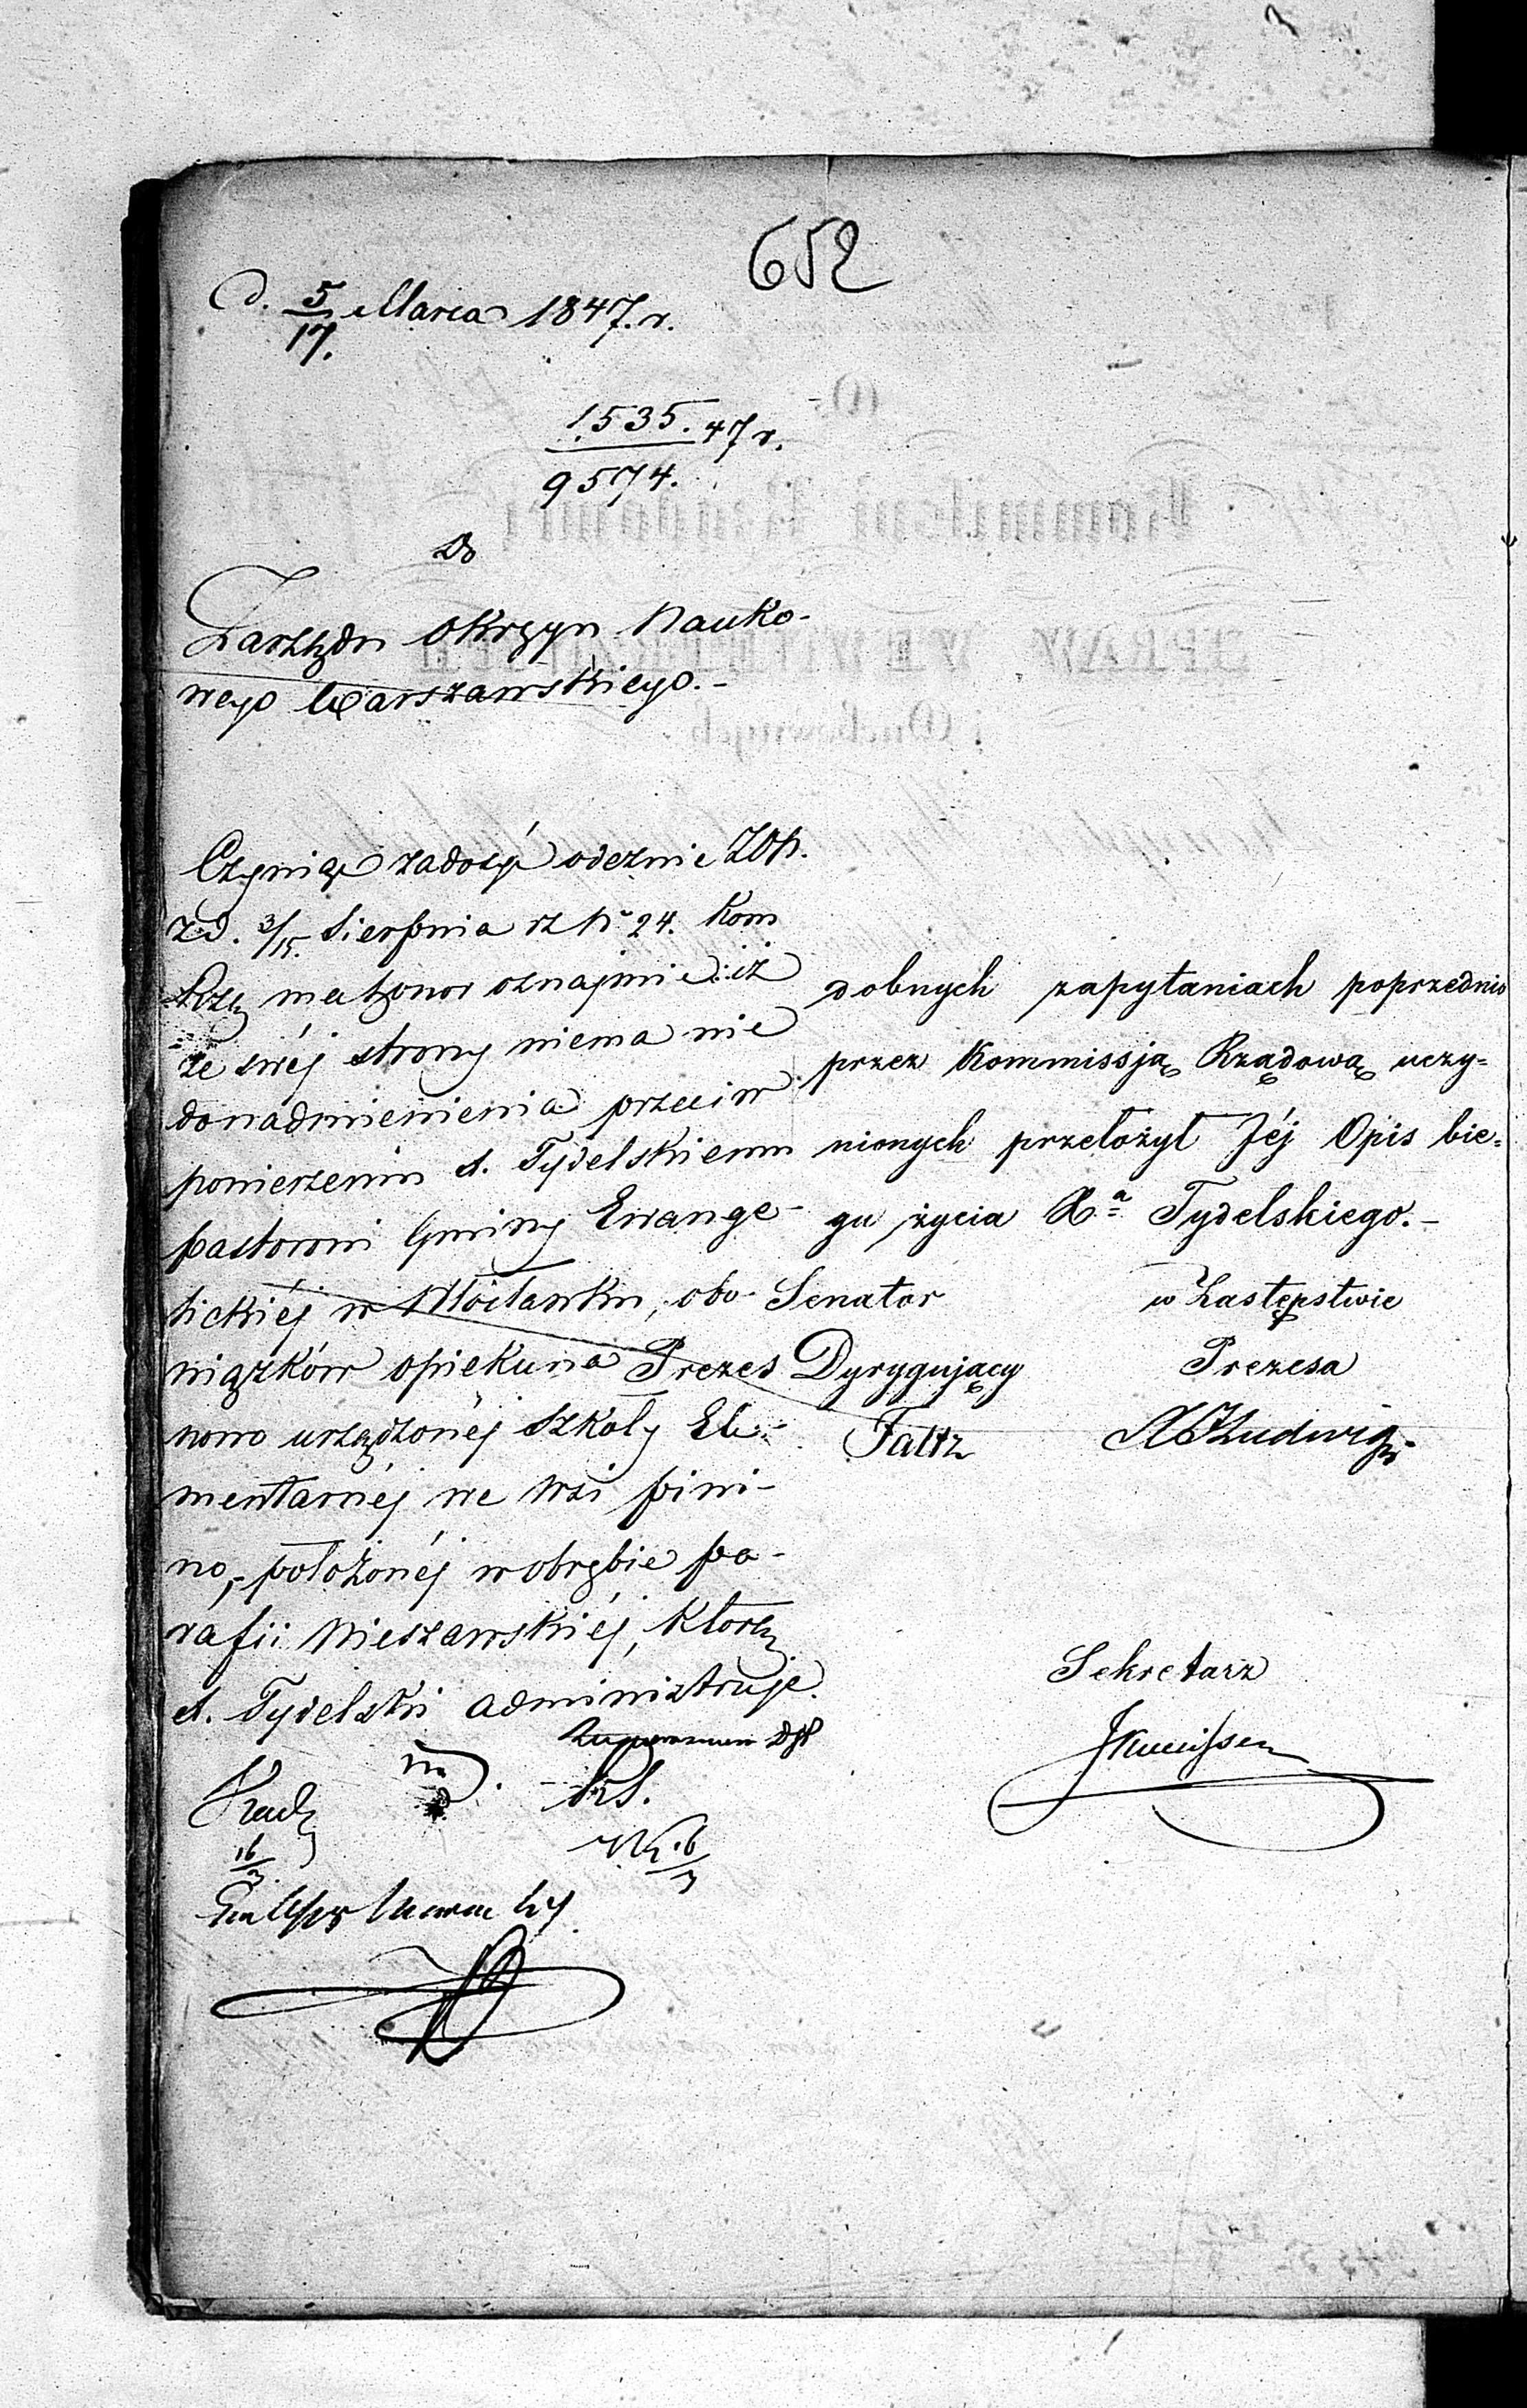 652
d. 5/17. Marca 1847. r.
1535. 47 r.
9574.
Do
Zarządu Okręgu Nauko-
wego Warszawskiego.-
Czyniąc zadość odezwie ZON.
z d. 3/15. Sierpnia rz Nr 24. Kom
Rzą ma honor oznajmić: iż
ze swéj strony niema nic
do nadmienienia przeciw
powierzeniu X. Tydelskiemu
pastorowi Gminy Ewange-
lickiéj w Włocławku, obo-
wiązków opiekuna
nowo urządzonéj szkoły Ele-
mentarnéj we wsi
no,- położonéj w obrębie pa-
rafii Nieszawskiéj, którą
X. Tydelski administruje.
16/3
dobnych zapytaniach poprzednio
przez Kommissją Rządową uczy=
nionych przełożył Jéj Opis bie=
gu życia Xa Tydelskiego.-
Senator
Prezes Dyrygujący
Faltz
w Zastępstwie
Prezesa
Ludwig
Sekretarz